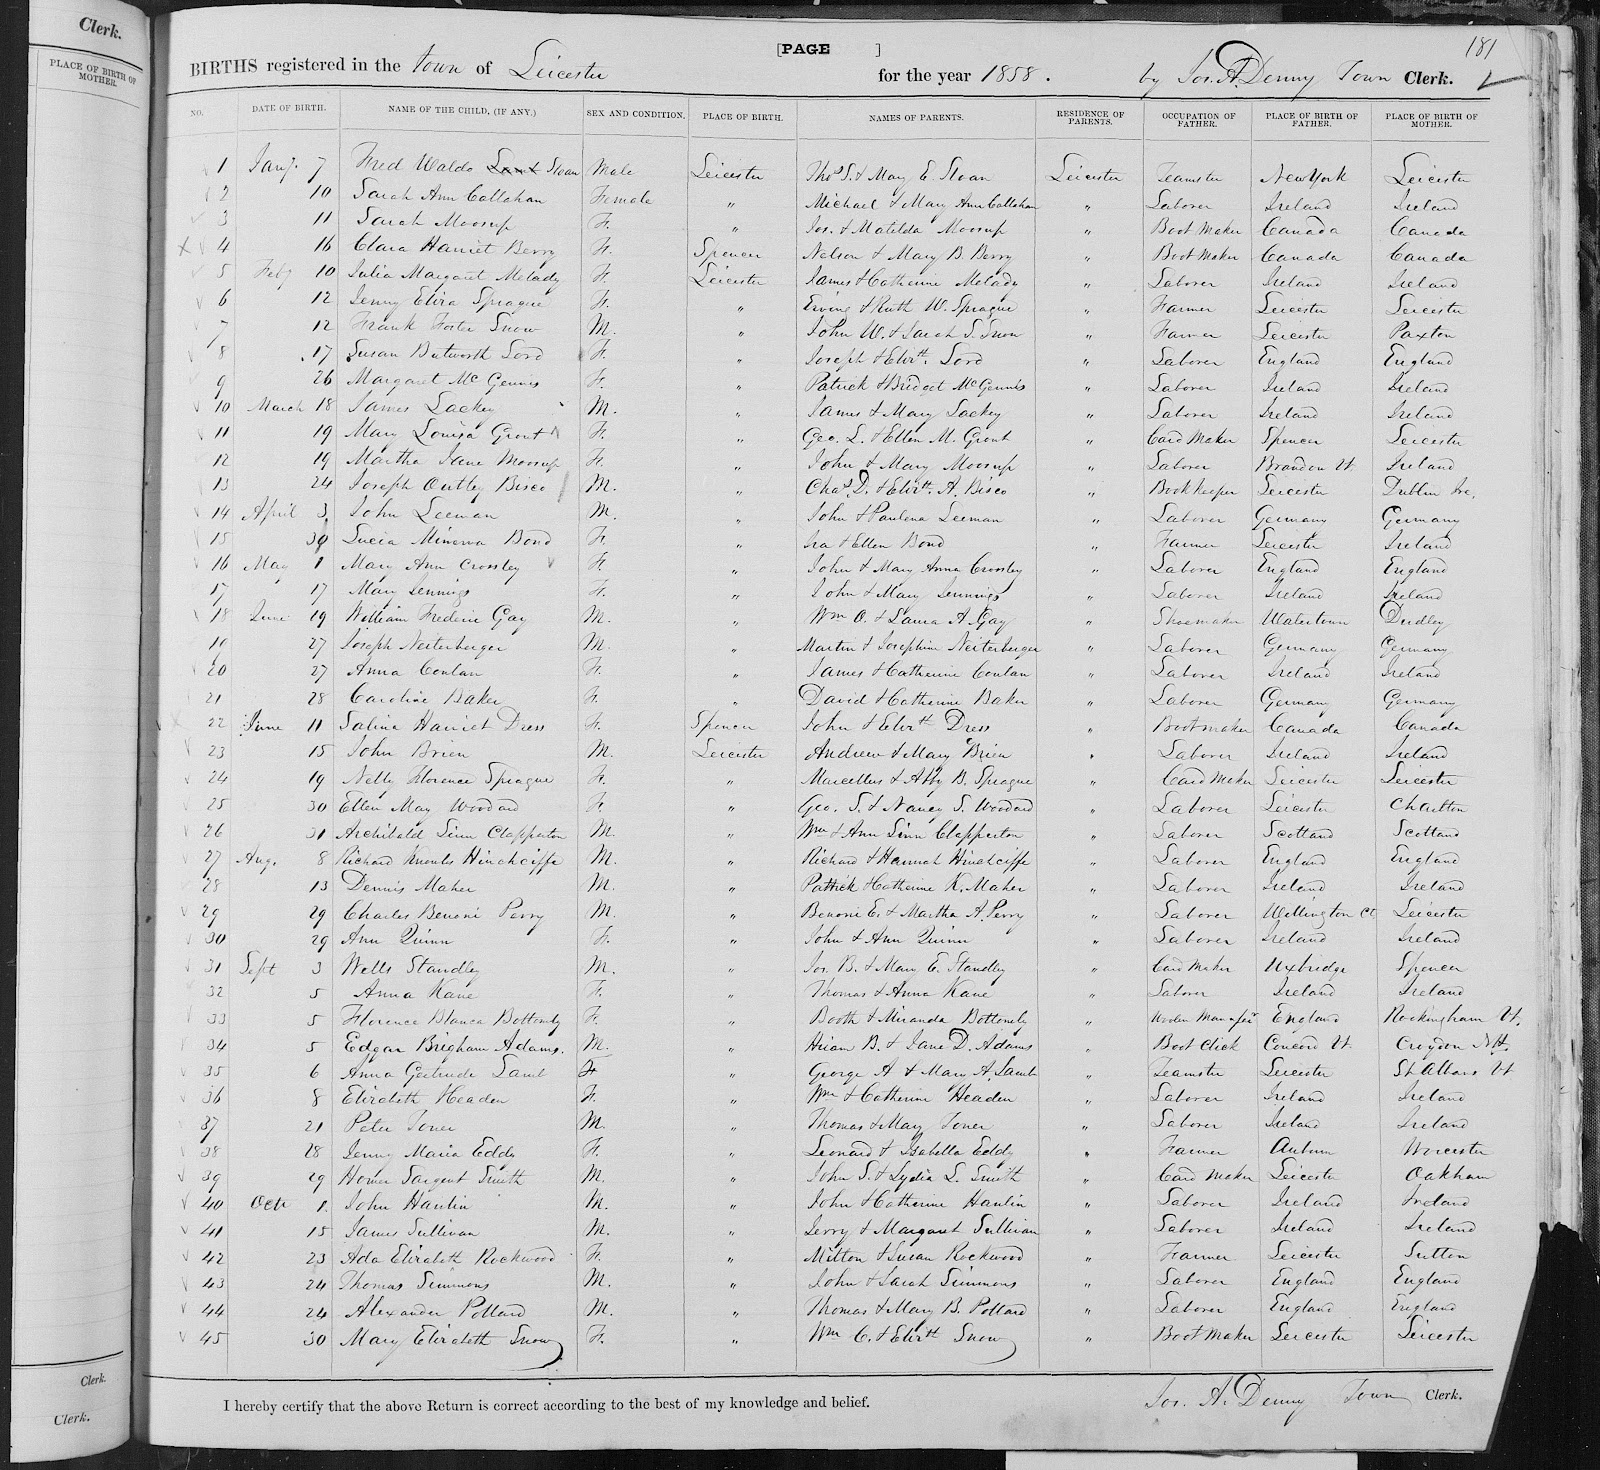 Clerk.
PLACE OF BIRTH OF
MOTHER.
Clerk.
Clerk.
[PAGE ]
181
BIRTHS registered in the town of Leicester for the year 1858. by Jos. A. Denny Town Clerk.
NO. DATE OF BIRTH. NAME OF THE CHILD, (IF ANY.) SEX AND CONDITION. PLACE OF BIRTH. NAMES OF PARENTS. RESIDENCE OF PARENTS. OCCUPATION OF FATHER. PLACE OF BIRTH OF FATHER. PLACE OF BIRTH OF MOTHER.
1 Jany. 7 Fred Waldo Sloan Male Leicester Thos S. & Mary E. Sloan Leicester Teamster New York Leicester
2 10 Sarah Ann Callahan Female " Michael & Mary Ann Callahan " Laborer Ireland Ireland
3 11 Sarah Moosup F. " Jos. & Matilda Moosup " Boot Maker Canada Canada
4 16 Clara Harriet Berry F. Spencer Nelson & Mary B. Berry " Boot Maker Canada Canada
5 Feby 10 Julia Margaret Melady F. Leicester James & Catherine Melady " Laborer Ireland Ireland
6 12 Jenny Eliza Sprague F. " Erving & Ruth W. Sprague " Farmer Leicester Leicester
7 12 Frank Foster Snow M. " John W. & Sarah S. Snow " Farmer Leicester Paxton
8 17 Susan Butworth Lord F. " Joseph & Elizth. Lord " Laborer England England
9 26 Margaret McGennis F. " Patrick & Bridget McGennis " Laborer Ireland Ireland
10 March 18 James Lackey M. " James & Mary Lackey " Laborer Ireland Ireland
11 19 Mary Louisa Grout F. " Geo. L. & Ellen M. Grout " Card Maker Spencer Leicester
12 19 Martha Jane Moosup F. " John & Mary Moosup " Laborer Brandon Vt. Ireland
13 24 Joseph Outley Bisco M. " Chas. D. & Elizth. A. Bisco " Bookkeeper Leicester Dublin Ire.
14 April 3 John Leeman M. " John & Paulena Leeman " Laborer Germany Germany
15 30 Lucia Minerva Bond F. " Ira & Ellen Bond " Farmer Leicester Ireland
16 May 1 Mary Ann Crossley F. " John & Mary Anna Crossley " Laborer England England
17 17 Mary Jennings F. " John & Mary Jennings " Laborer Ireland Ireland
18 June 19 William Frederic Gay M. " Wm O. & Laura A. Gay " Shoemaker Watertown Dudley
19 27 Joseph Neiterberger M. " Martin & Josephine Neiterberger " Laborer Germany Germany
20 27 Anna Conlan F. " James & Catherine Conlan " Laborer Ireland Ireland
21 28 Caroline Baker F. " David & Catherine Baker " Laborer Germany Germany
22 June 11 Salina Harriet Dress F. Spencer John & Elizth Dress " Bootmaker Canada Canada
23 15 John Brien M. Leicester Andrew & Mary Brien " Laborer Ireland Ireland
24 19 Nelly Florence Sprague F. " Marcellus & Abby B. Sprague " Card Maker Leicester Leicester
25 30 Ellen May Woodard F. " Geo. S. & Nancy S. Woodard " Laborer Leicester Charlton
26 31 Archibald Linn Clapperton M. " Wm & Ann Linn Clapperton " Laborer Scotland Scotland
27 Aug. 8 Richard Knowles Hinchciffe M. " Richard & Hannah Hinchciffe " Laborer England England
28 13 Dennis Maher M. " Patrick & Catherine K. Maher " Laborer Ireland Ireland
29 29 Charles Benoni Perry M. " Benoni E. & Martha A. Perry " Laborer Willington Ct. Leicester
30 29 Ann Quinn F. " John & Ann Quinn " Laborer Ireland Ireland
31 Sept 3 Wells Standley M. " Jos. B. & Mary E. Standley " Card Maker Uxbridge Spencer
32 5 Anna Kane F. " Thomas & Anna Kane " Laborer Ireland Ireland
33 5 Florence Blanca Bottomly F. " Booth & Miranda Bottomly " Woolen Manufr England Rockingham Vt.
34 5 Edgar Brigham Adams. M. " Hiram B. & Jane D. Adams " Boot Click Concord Vt. Croydon NH.
35 6 Anna Gertrude Lamb F " George A & Mary A. Lamb " Teamster Leicester St Albans Vt
36 8 Elizabeth Headen F. " Wm & Catherine Headen " Laborer Ireland Ireland
37 21 Peter Toner M. " Thomas & Mary Toner " Laborer Ireland Ireland
38 28 Jenny Maria Eddy F. " Leonard & Isabella Eddy " Farmer Auburn Worcester
39 29 Homer Sargent Smith M. " John S. & Lydia L. Smith " Card Maker Leicester Oakham
40 Octr 1. John Hanlin M. " John & Catherine Hanlin " Laborer Ireland Ireland
41 15 James Sullivan M. " Jerry & Margaret Sullivan " Laborer Ireland Ireland
42 23 Ada Elizabeth Rockwood F. " Milton & Susan Rockwood " Farmer Leicester Sutton
43 24 Thomas Simmons M. " John & Sarah Simmons " Laborer England England
44 24 Alexander Pollard M. " Thomas & Mary B. Pollard " Laborer England England
45 30 Mary Elizabeth Snow F. " Wm C. & Elizth Snow " Boot Maker Leicester Leicester
I hereby certify that the above Return is correct according to the best of my knowledge and belief. Jos. A. Denny Town Clerk.